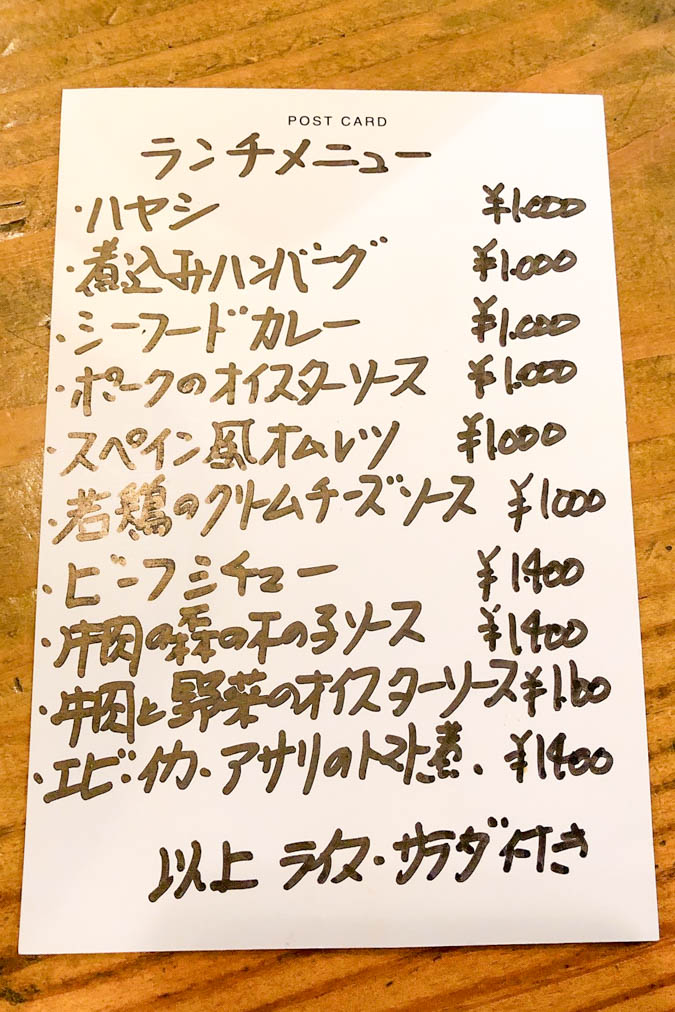 POST CARD
ランチメニュー
・ハヤシ ¥1.000
・煮込みハンバーグ ¥1.000
・シーフードカレー ¥1.000
・ポークのオイスターソース ¥1.000
・スペイン風オムレツ ¥1.000
・若鶏のクリームチーズソース ¥1.000
・ビーフシチュー ¥1.400
・牛肉の森の木の子ソース ¥1.400
・牛肉と野菜のオイスターソース
・エビ・イカ・アサリのトマト煮. ¥1400
以上 ライス・サラダ付き